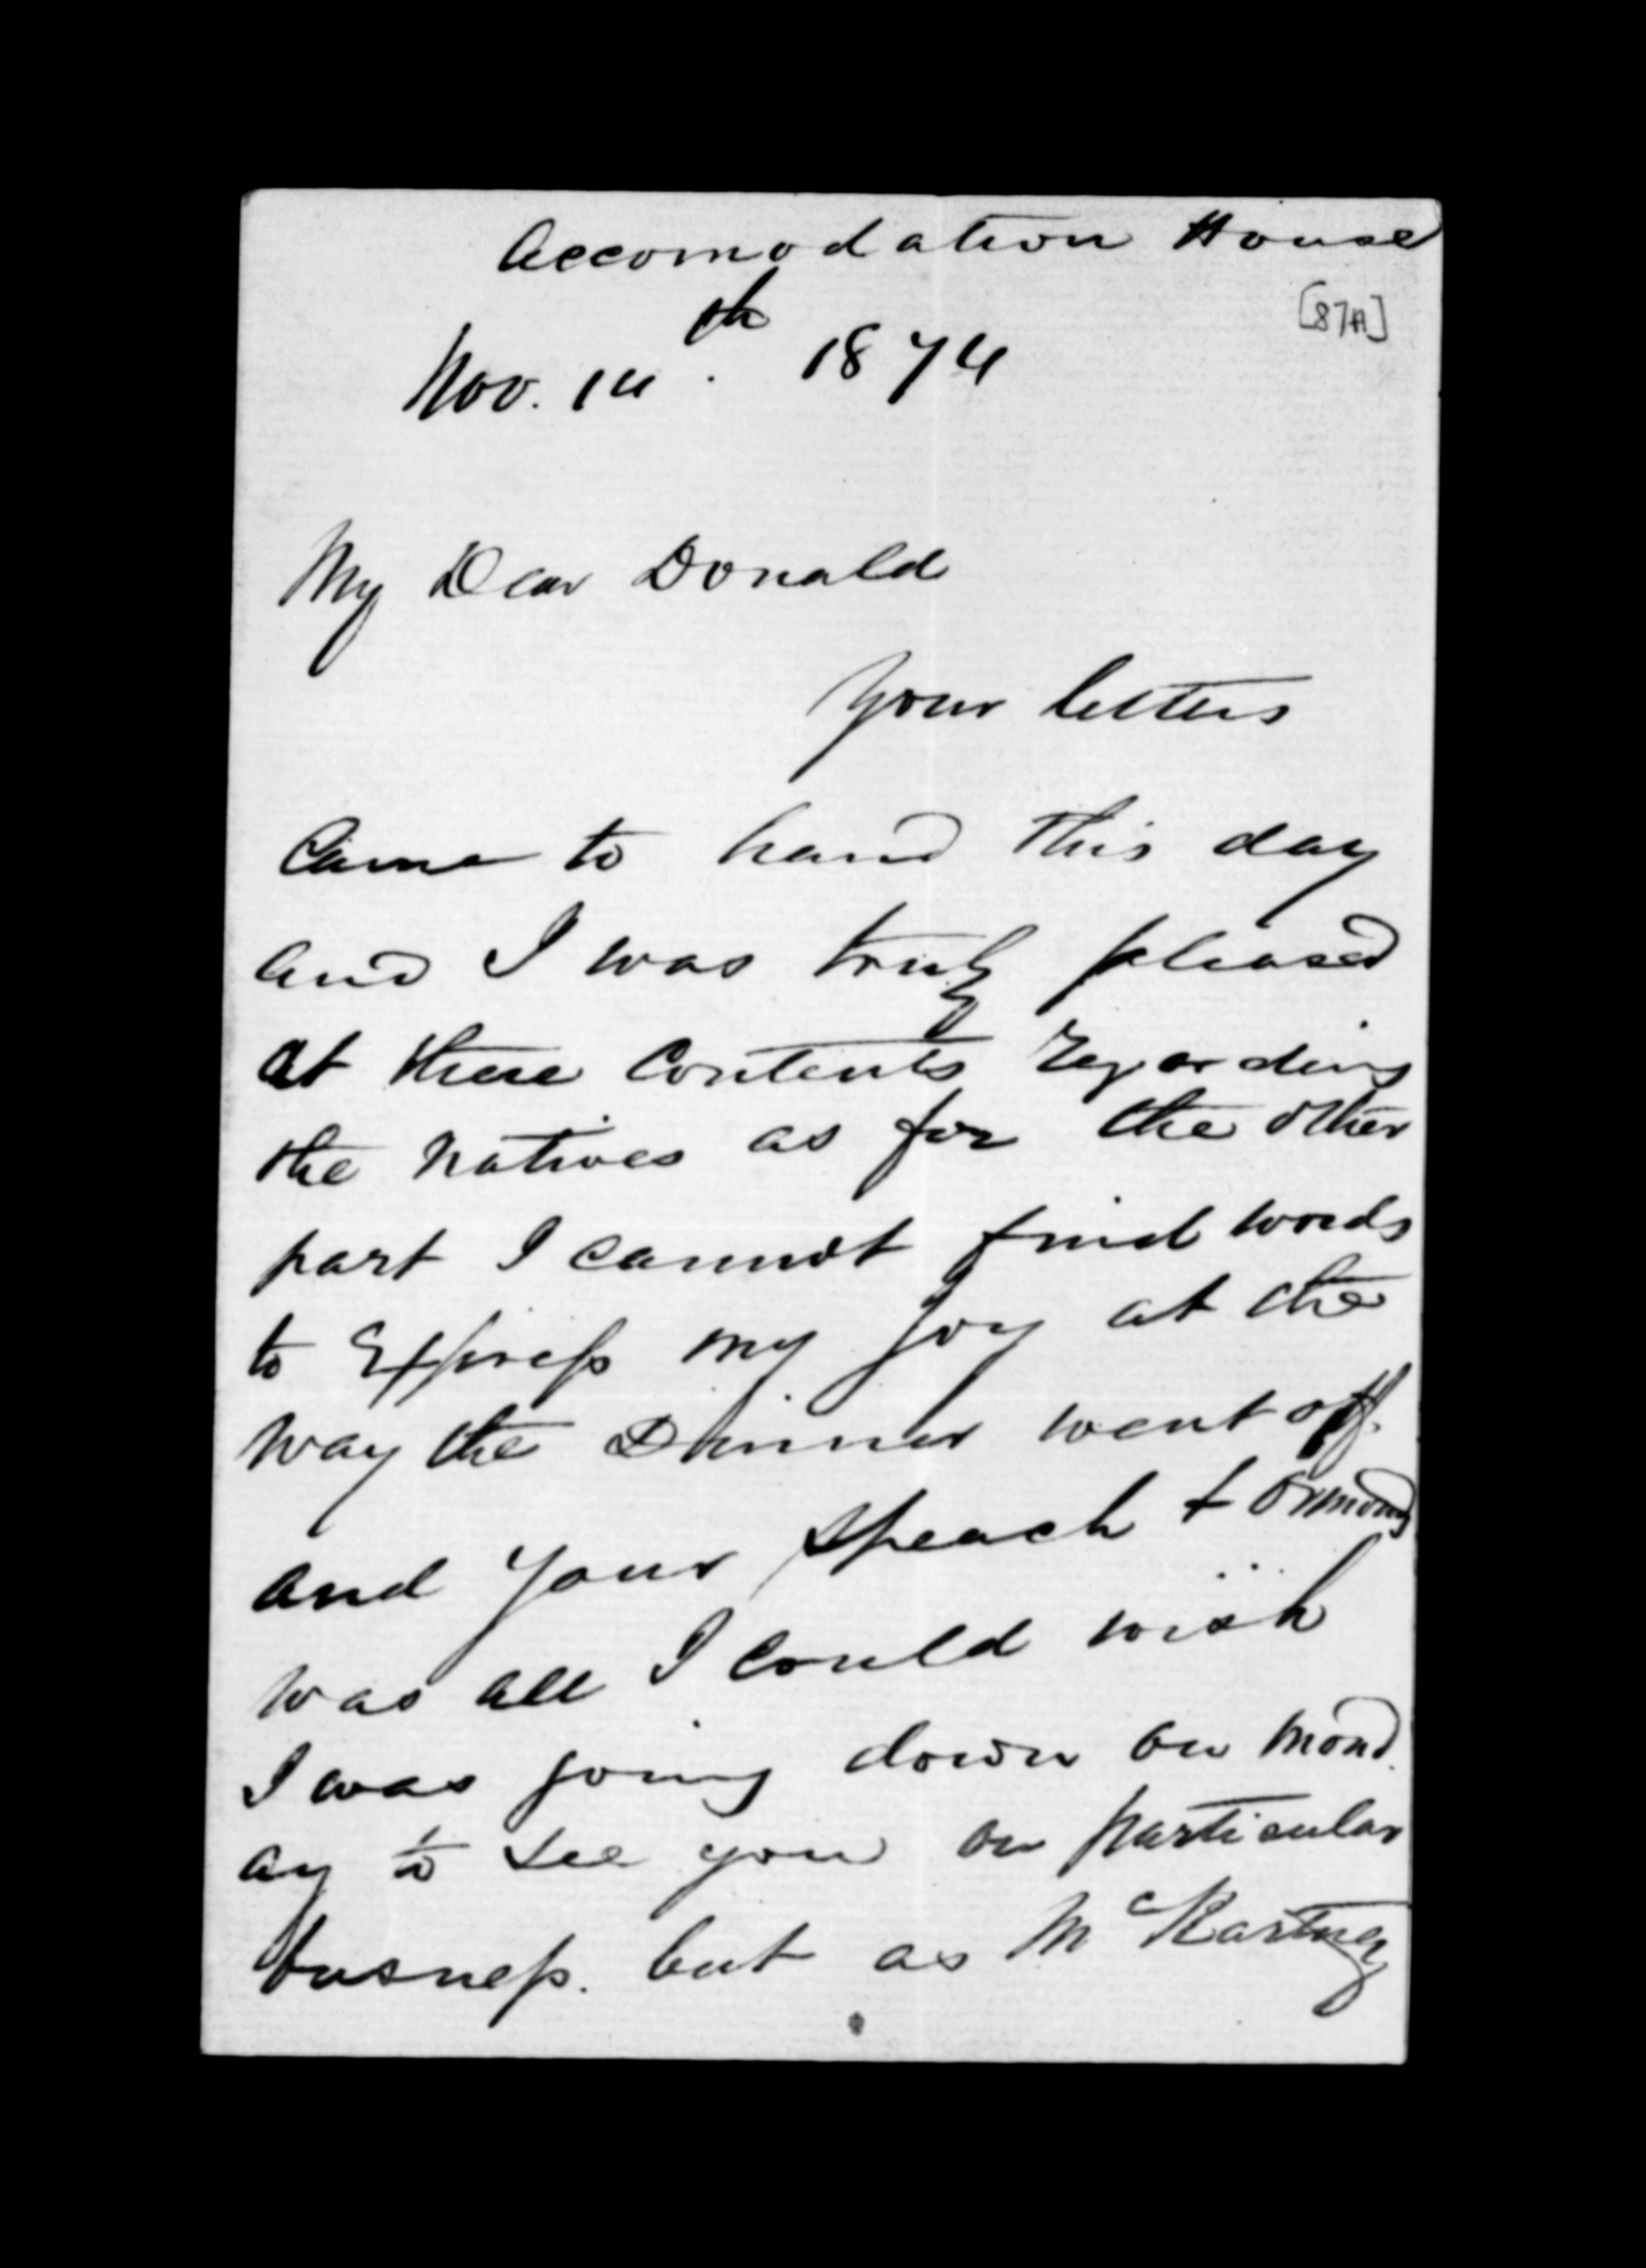 Accomodation House
[87A]
Nov. 14th. 1874
My Dear Donald
Your letters
Came to hand this day
and I was truly pleased
at there Contents regarding
the Natives as for the other
part I cannot find words
to Express my joy at the
way the Dinner went off.
and your speach & Ormonds
was all I could wish
I was going down on Mond
ay to see you on particular
busness. but as McKartney